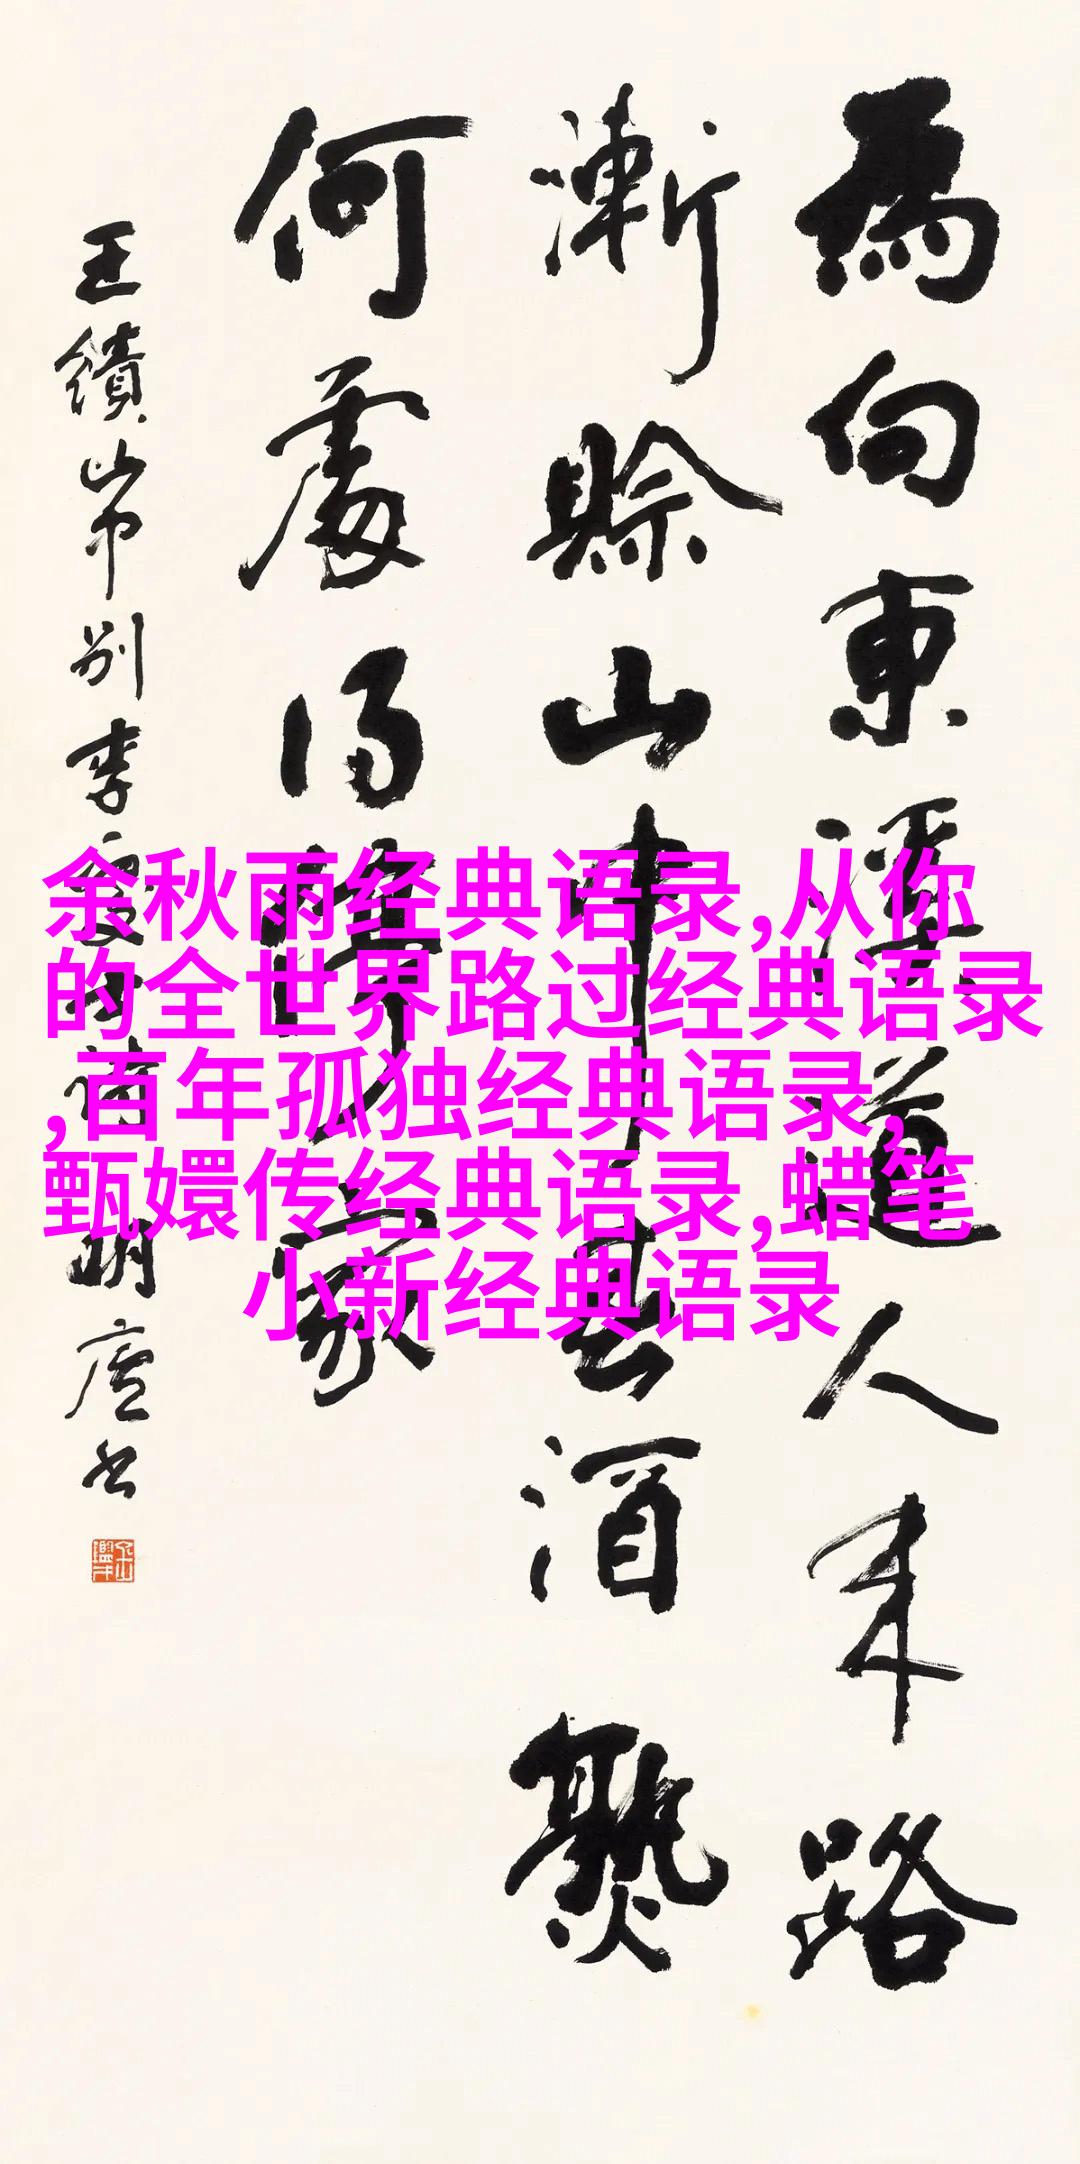 為向東溪道人来路
漸賒山中春酒熟
何處得停家
王績山中別李處士詩明廬書
余秋雨经典语录,从你
的全世界路过经典语录
,百年孤独经典语录,
甄嬛传经典语录,蜡笔
小新经典语录